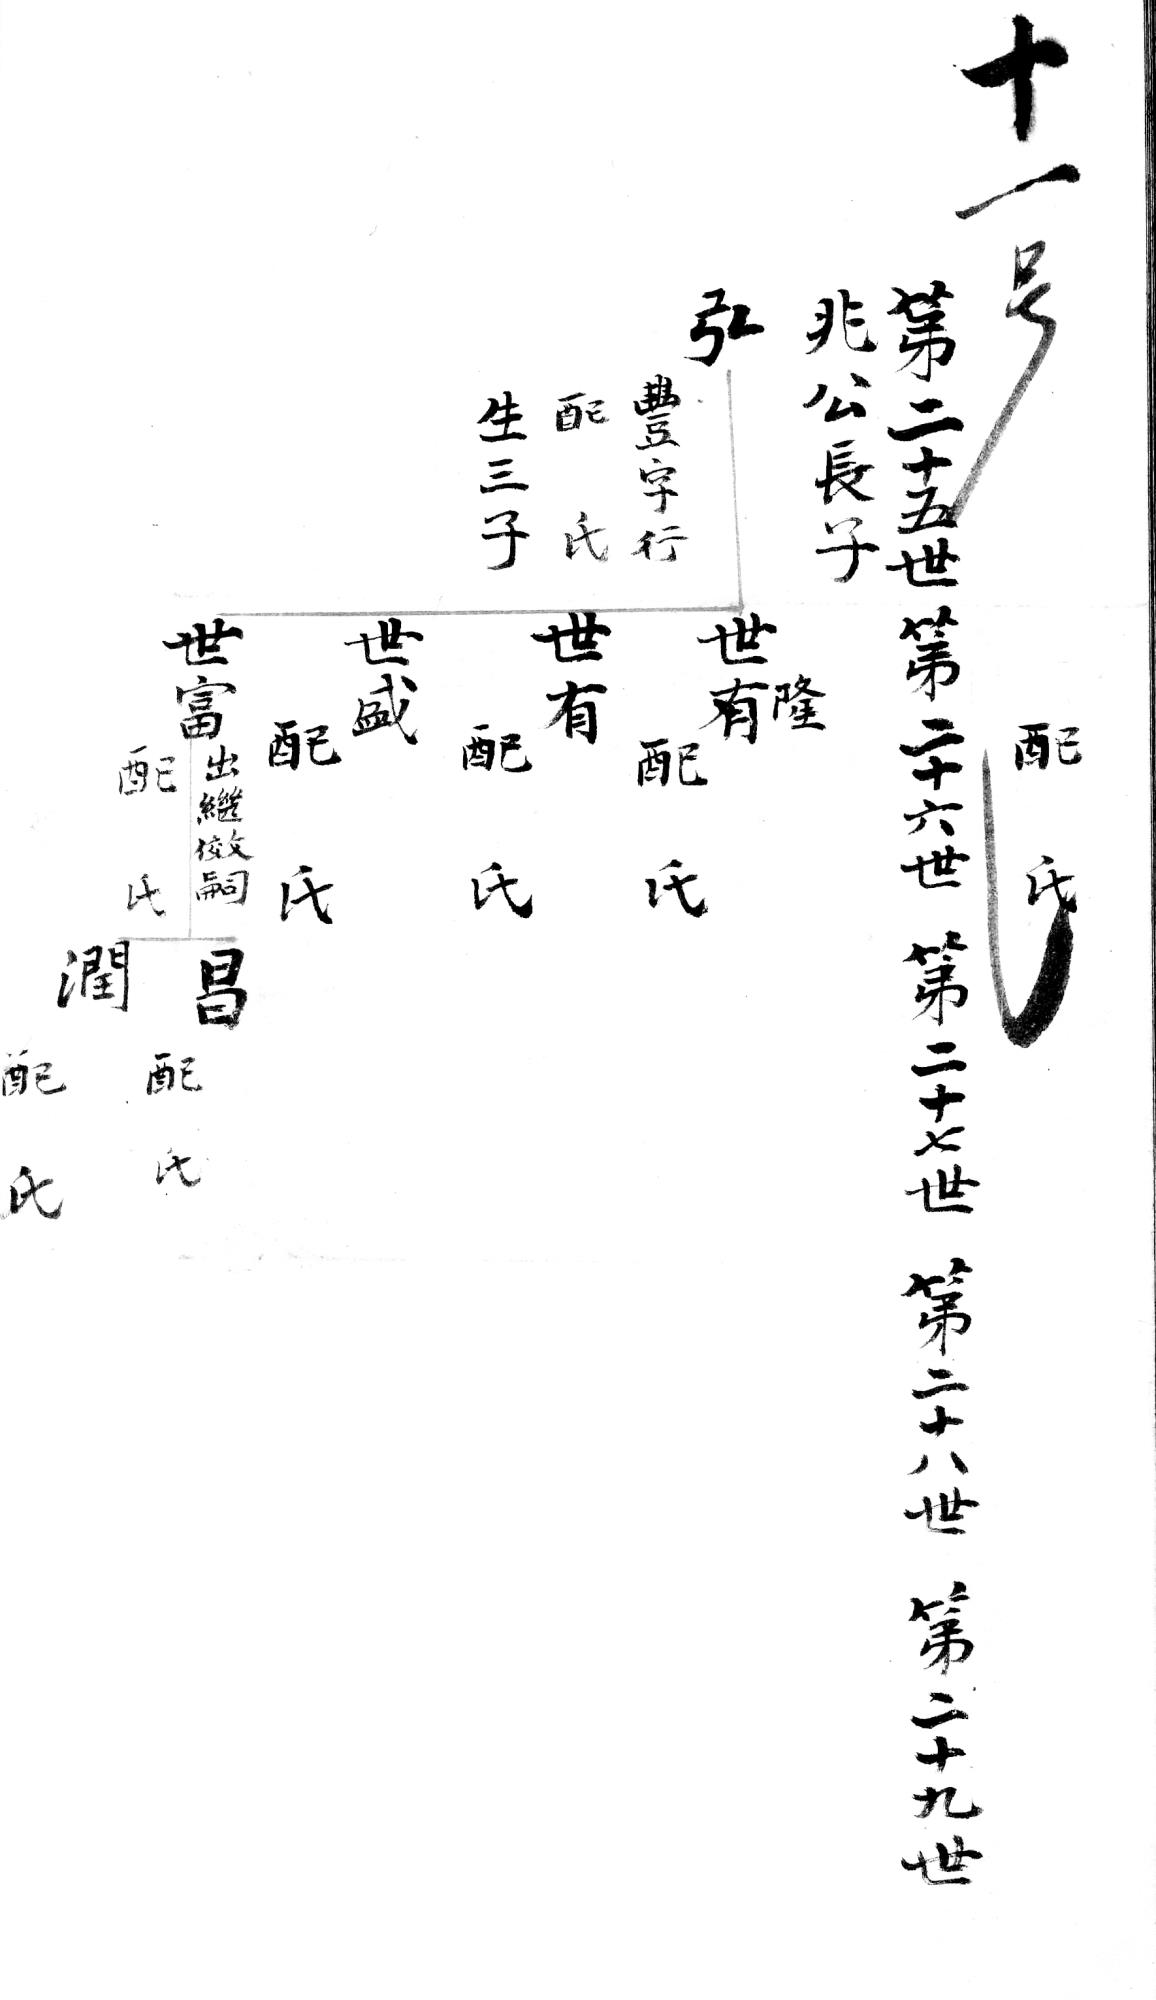 十一号
配 氏
第二十五世 第二十六世 第二十七世 第二十八世 第二十九世
兆公長子
弘
豐字行
配 氏
生三子
隆
世有
配 氏
世有
配 氏
世盛
配 氏
世富
出繼傚嗣
配 氏
昌
配 氏
潤
配 氏